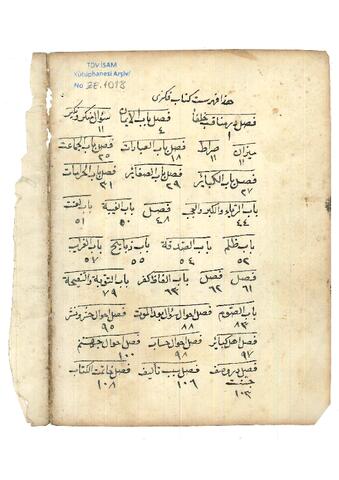 TDV İSAM
Kütüphanesi Arşivi
No 2E.1018
هذا فهرست كتاب فكزى
فصل در مناقب خلفا فصل باب الايمان سؤال منكر ونكير
١ ٤ ١١
ميزان صراط فصل باب العبارات فصل باب جماعت
١١ ١١ ١٨ ٢٥
فصل باب الكبائر فصل باب الصغائر فصل باب الحرامات
٢٧ ٢٩ ٣١
باب الرياء والكبر والعجب فصل باب الغيبة باب
٤٤ ٤٨ ٥٠ ٥١
باب ظلم باب الصدقة باب ذبايح باب
٥٢ ٥٤ ٥٥ ٥٧
فصل فصل باب الفاظ كفر باب التوبة والنصيحة
٦١ ٦٢ ٦٣ ٧٩
باب الصوم فصل احوال سؤال بعد الموت فصل احوال حشر ونشر
٨٣ ٨٨ ٩٥
فصل اهل كبائر فصل احوال حساب فصل احوال جهنم
٩٧ ٩٨ ١٠٠
فصل در وصف جنت فصل سبب تأليف فصل خاتمت الكتاب
١٠٣ ١٠٦ ١٠٨